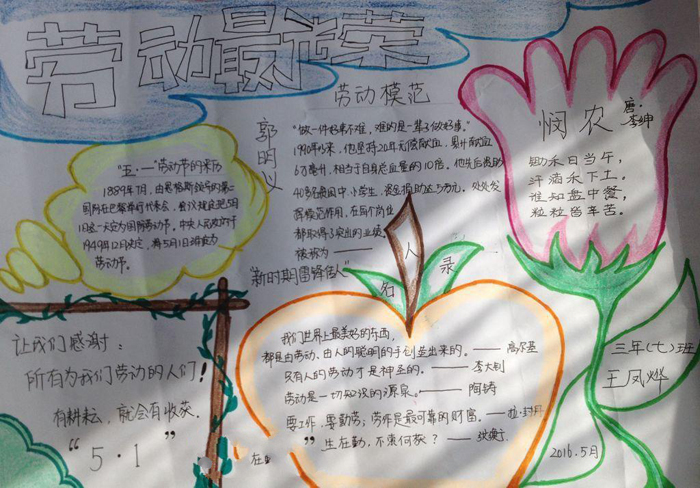 劳动最光荣
劳动模范
郭明义
"做一件好事不难，难的是一辈子做好事。"
1990年来，他坚持20年无偿献血，累计献血
6万毫升，相当于自身总血量的10倍。他先后资助
挥模范作用，在每个岗位
都取得了突出的业绩。
被称为
"新时期雷锋传人"
"五·一"劳动节的来历
1889年7月，由恩格斯领导的第二
国际在巴黎举行代表会，会议规定把5月
1日这一天定为国际劳动节。中央人民政府于
1949年12月决定，将5月1日法定为
劳动节。
悯农
唐·
李绅
锄禾日当午，
汗滴禾下土。
谁知盘中餐，
粒粒皆辛苦。
名人录
我们世界上最美好的东西，
都是由劳动、由人的聪明的手创造出来的。——高尔基
只有人的劳动才是神圣的。——李大钊
劳动是一切知识的源泉。——陶铸
要工作，要勤劳，劳作是最可靠的财富。——拉·封丹
"生在勤，不索何获？——张衡
让我们感谢：
所有为我们劳动的人们！
有耕耘，就会有收获。
"5·1"
在
三年(七)班
王凤烨
2016.5月